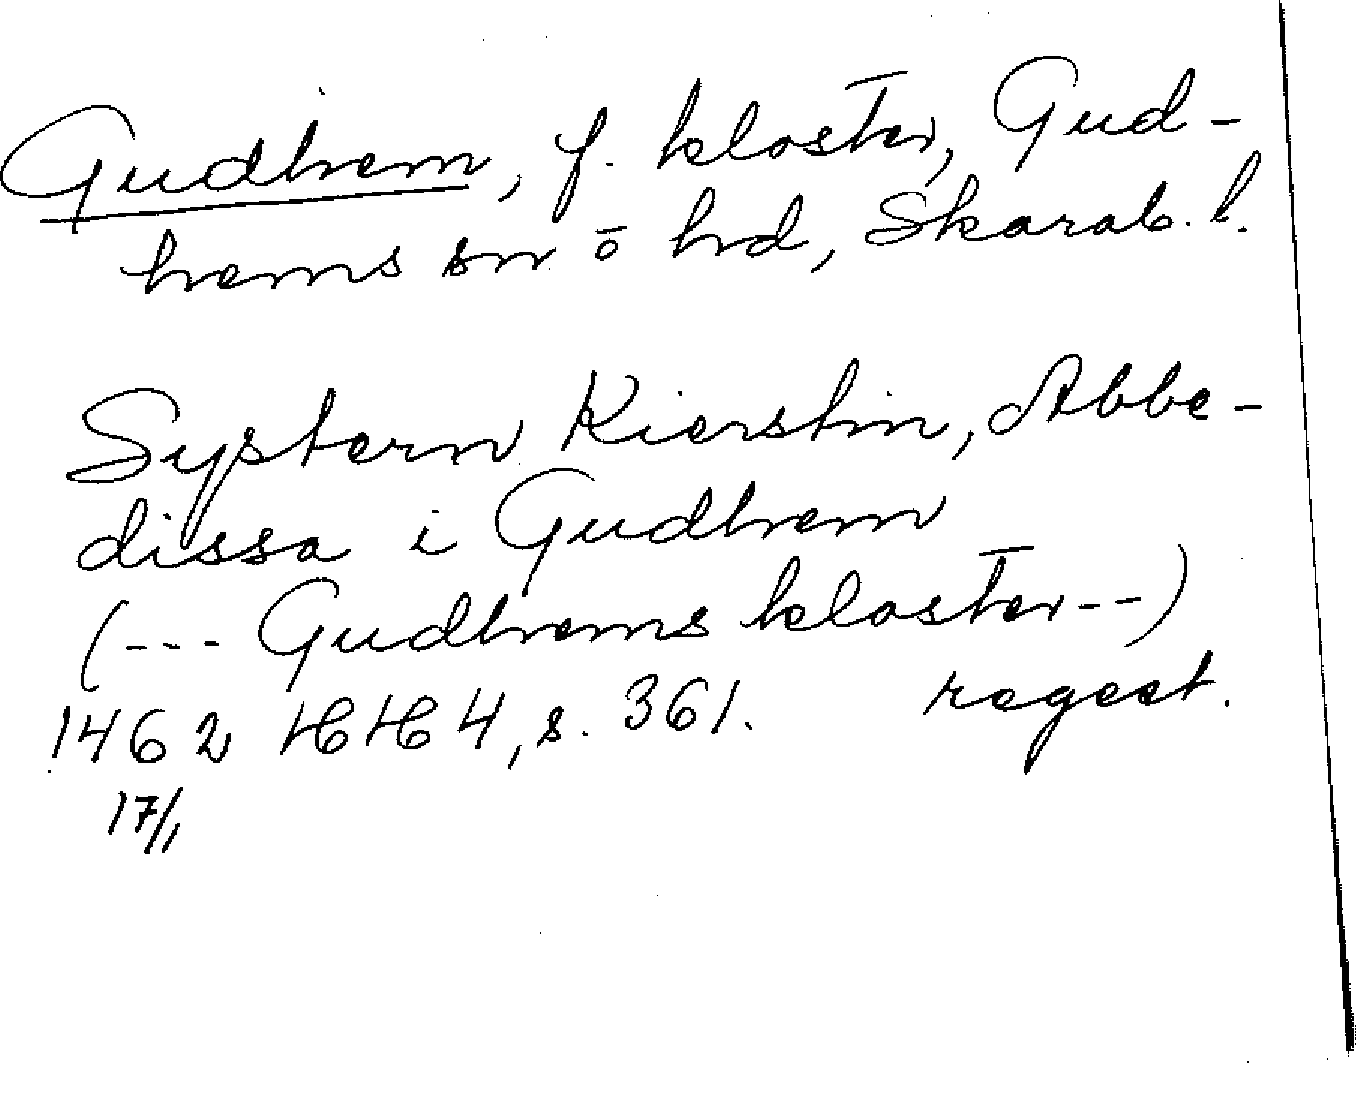 Gudhem, f. kloster, Gud-
hems sn o hd, Skarab. l.
Systern Kierstin, Abbe-
dissa i Gudhem
(--- Gudhems kloster --)
1462 HH 4, s. 361. regest.
17/1